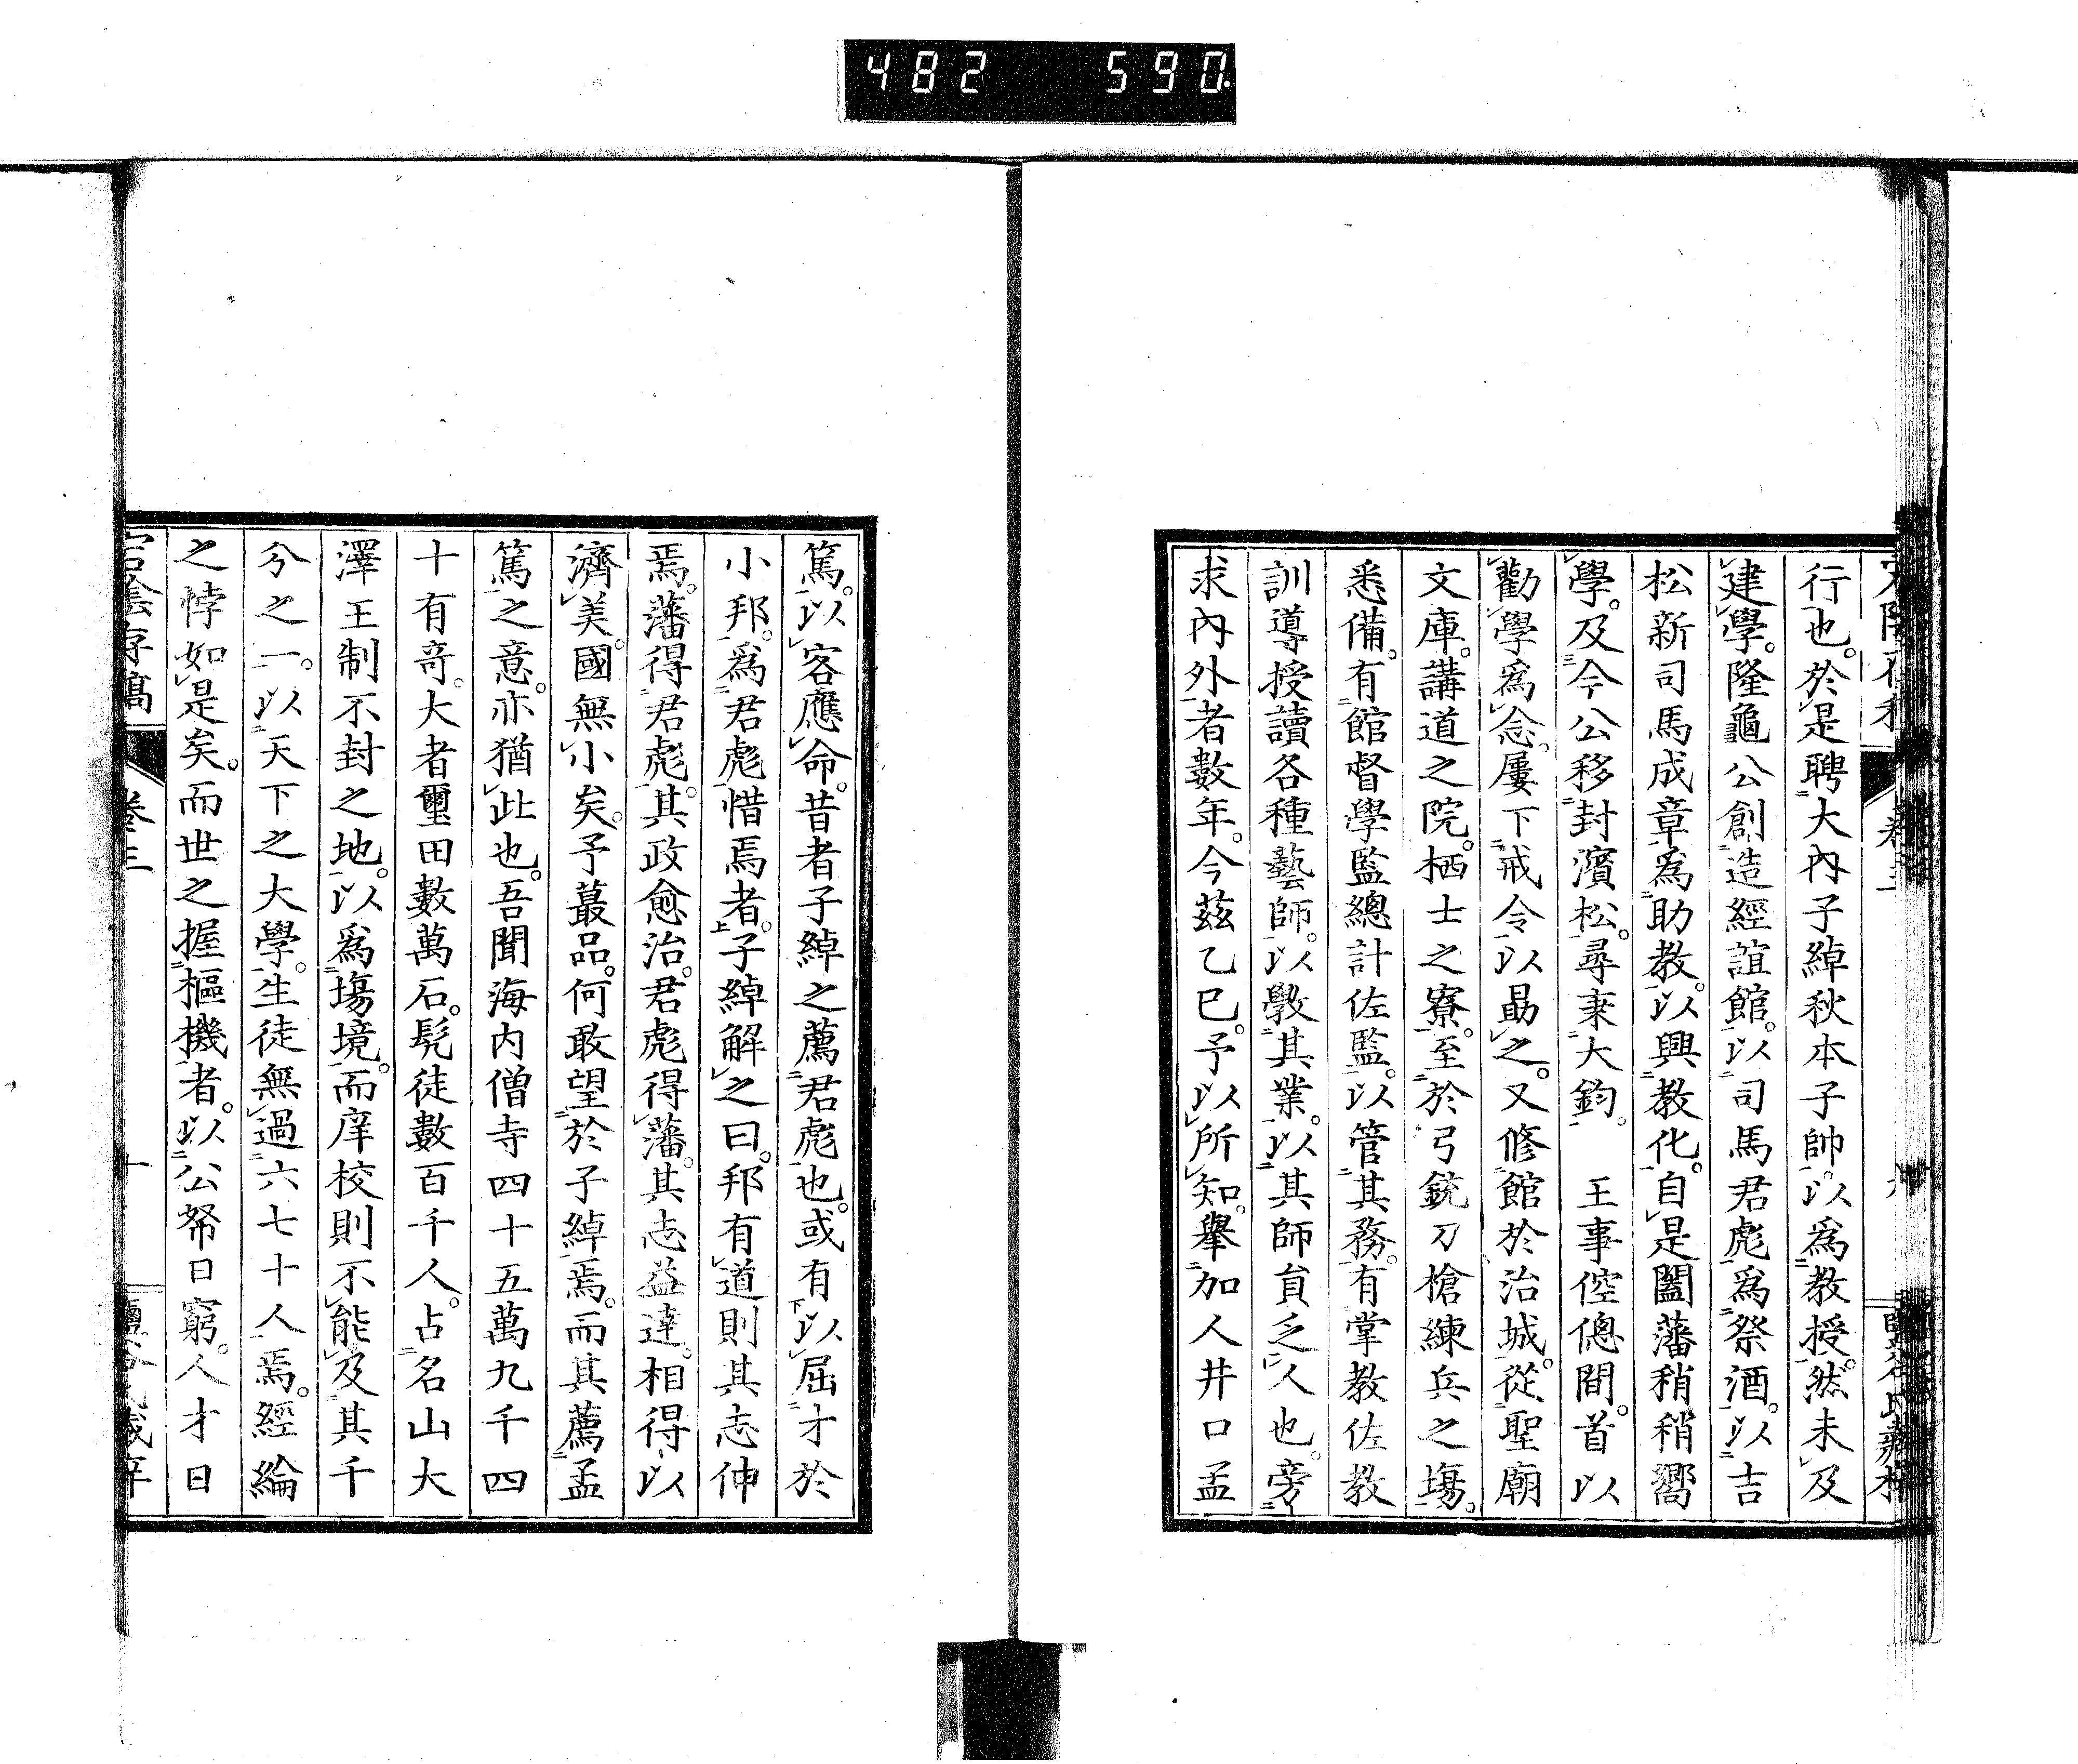 482 590
行也。於是聘大內子綽秋本子帥。以爲教授。然未及
建學。隆龜公創造經誼館。以司馬君彪爲祭酒。以吉
松新司馬成章爲助教。以興教化。自是闔藩稍稍嚮
學。及今公移封濱松。尋秉大鈞。　王事倥傯間。首以
勸學爲念。屢下戒令以勗之。又修館於治城。從聖廟
文庫。講道之院。栖士之寮。至於弓銃刀槍練兵之場。
悉備。有館督學監總計佐監。以管其務。有掌教佐教
訓導授讀各種藝師。以斅其業。以其師貟乏人也。旁
求內外者數年。今茲乙巳。予以所知。舉加人井口孟
篤。以客應命。昔者子綽之薦君彪也。或有以屈才於
小邦。爲君彪惜焉者。子綽解之曰。邦有道則其志伸
焉。藩得君彪。其政愈治。君彪得藩。其志益達。相得以
濟美。國無小矣。予蕞品。何敢望於子綽焉。而其薦孟
篤之意。亦猶此也。吾聞海内僧寺四十五萬九千四
十有竒。大者璽田數萬石。髡徒數百千人。占名山大
澤王制不封之地。以爲場境。而庠校則不能及其千
兮之一。以天下之大學。生徒無過六七十人焉。經綸
之悖如是矣。而世之握樞機者。以公帑日窮。人才日
卷三